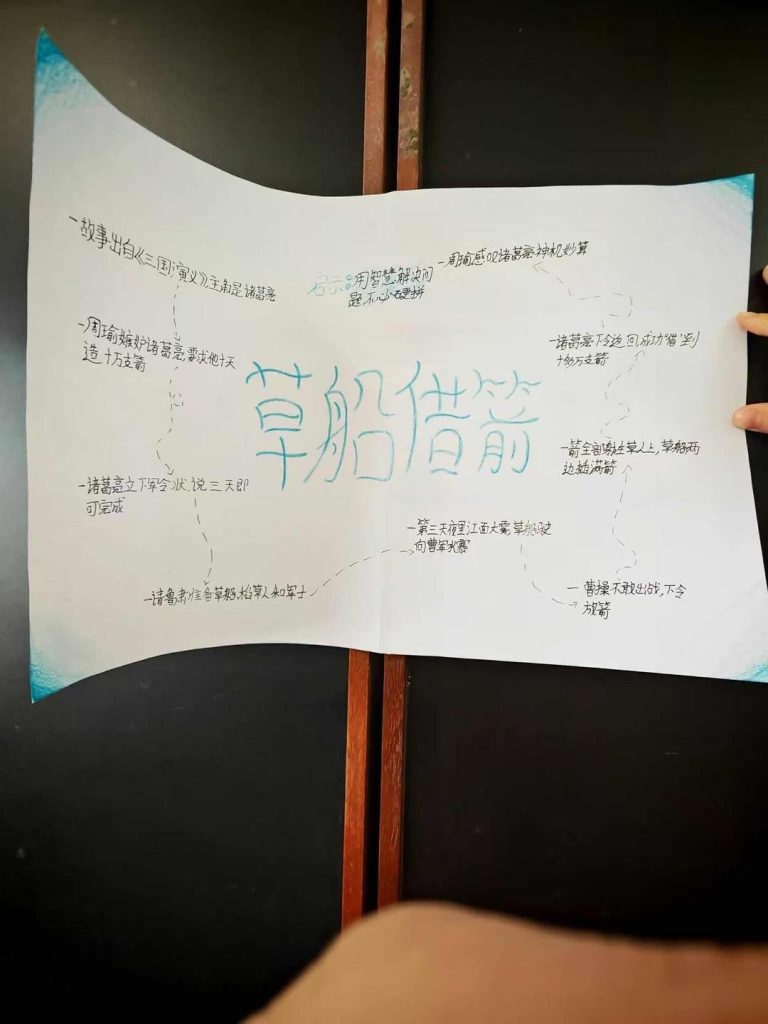 一故事出自《三国演义》,主角是诸葛亮
一周瑜嫉妒诸葛亮,要求他十天
造十万支箭
一诸葛亮立下军令状,说三天即
可完成
一请鲁肃准备草船,稻草人和军士
一第三天夜里江面大雾,草船驶
向曹军水寨
一曹操不敢出战,下令
放箭
一箭全部射在草人上,草船两
边插满箭
一诸葛亮下令返回,成功“借”到
十多万支箭
一周瑜感叹诸葛亮神机妙算
启示:用智慧解决问
题,不必硬拼
草船借箭